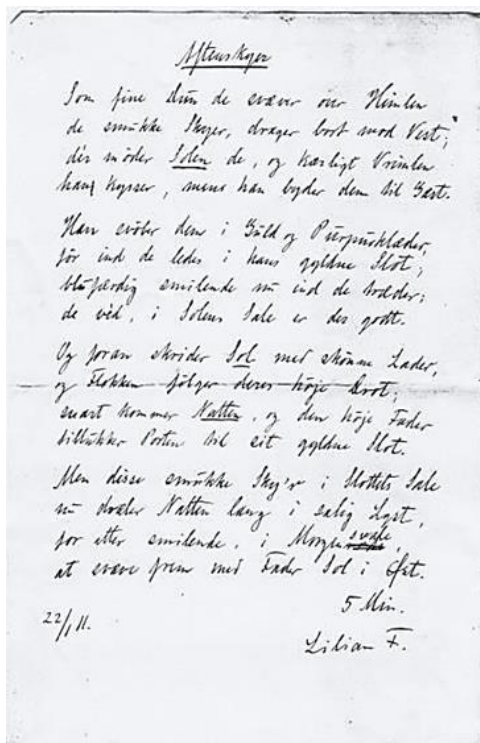 Aftenskyer
Som fine Dun de svæver over Himlen
de smukke Skyer, drager bort mod Vest;
dér møder Solen de, og kærligt Vrimlen
han kysser, mens han byder dem til Gæst.
Han svøber dem i Guld og Purpurklæder,
før ind de ledes i hans gyldne Slot;
blufærdig smilende nu ind de træder;
de véd, i Solens Sale er des godt.
Og foran skrider Sol med skønne Lader,
og Flokken følger deres høje Drot;
snart kommer Natten, og den høje Fader
tillukker Porten til sit gyldne Slot.
Men disse smukke Sky'r i Slottets Sale
nu dvæler Natten lang i salig Lyst,
for atter smilende, i Morgensvale,
at svæve frem med Fader Sol i Øst.
5 Min.
22/1 11.
Lilian F.